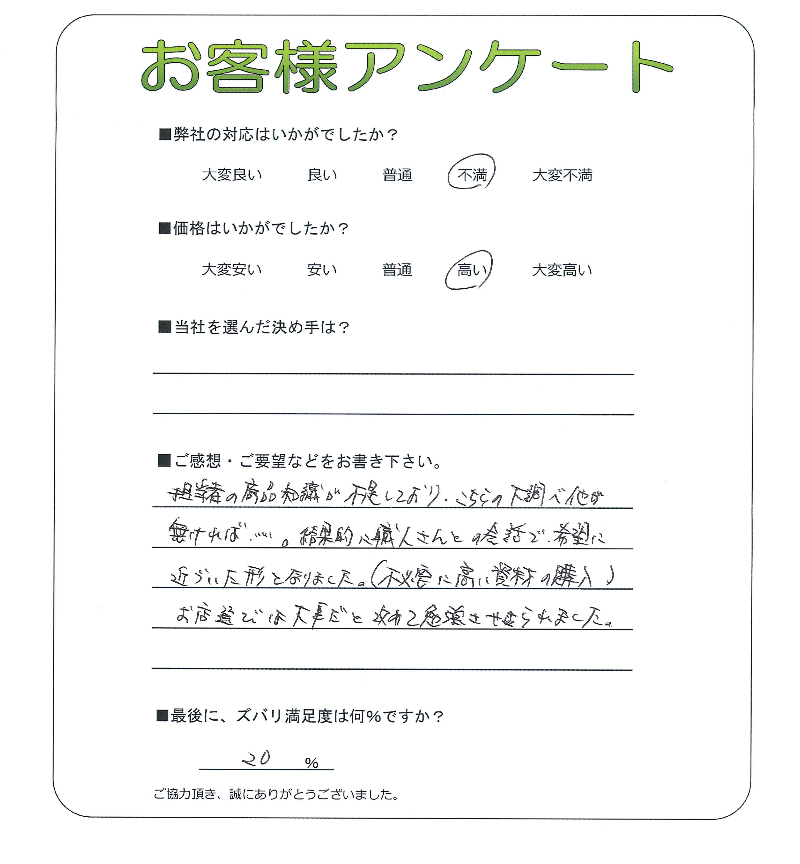 お客様アンケート
■弊社の対応はいかがでしたか？
大変良い 良い 普通 不満 大変不満
■価格はいかがでしたか？
大変安い 安い 普通 高い 大変高い
■当社を選んだ決め手は？
■ご感想・ご要望などをお書き下さい。
担当者の商品知識が不足しており、こちらの下調べ他が
無ければ……。結果的に職人さんとの会話で、希望に
近づいた形となりました。(不必要に高い資材の購入)
お店選びは大事だと改めて勉強させられました。
■最後に、ズバリ満足度は何%ですか？
20 %
ご協力頂き、誠にありがとうございました。